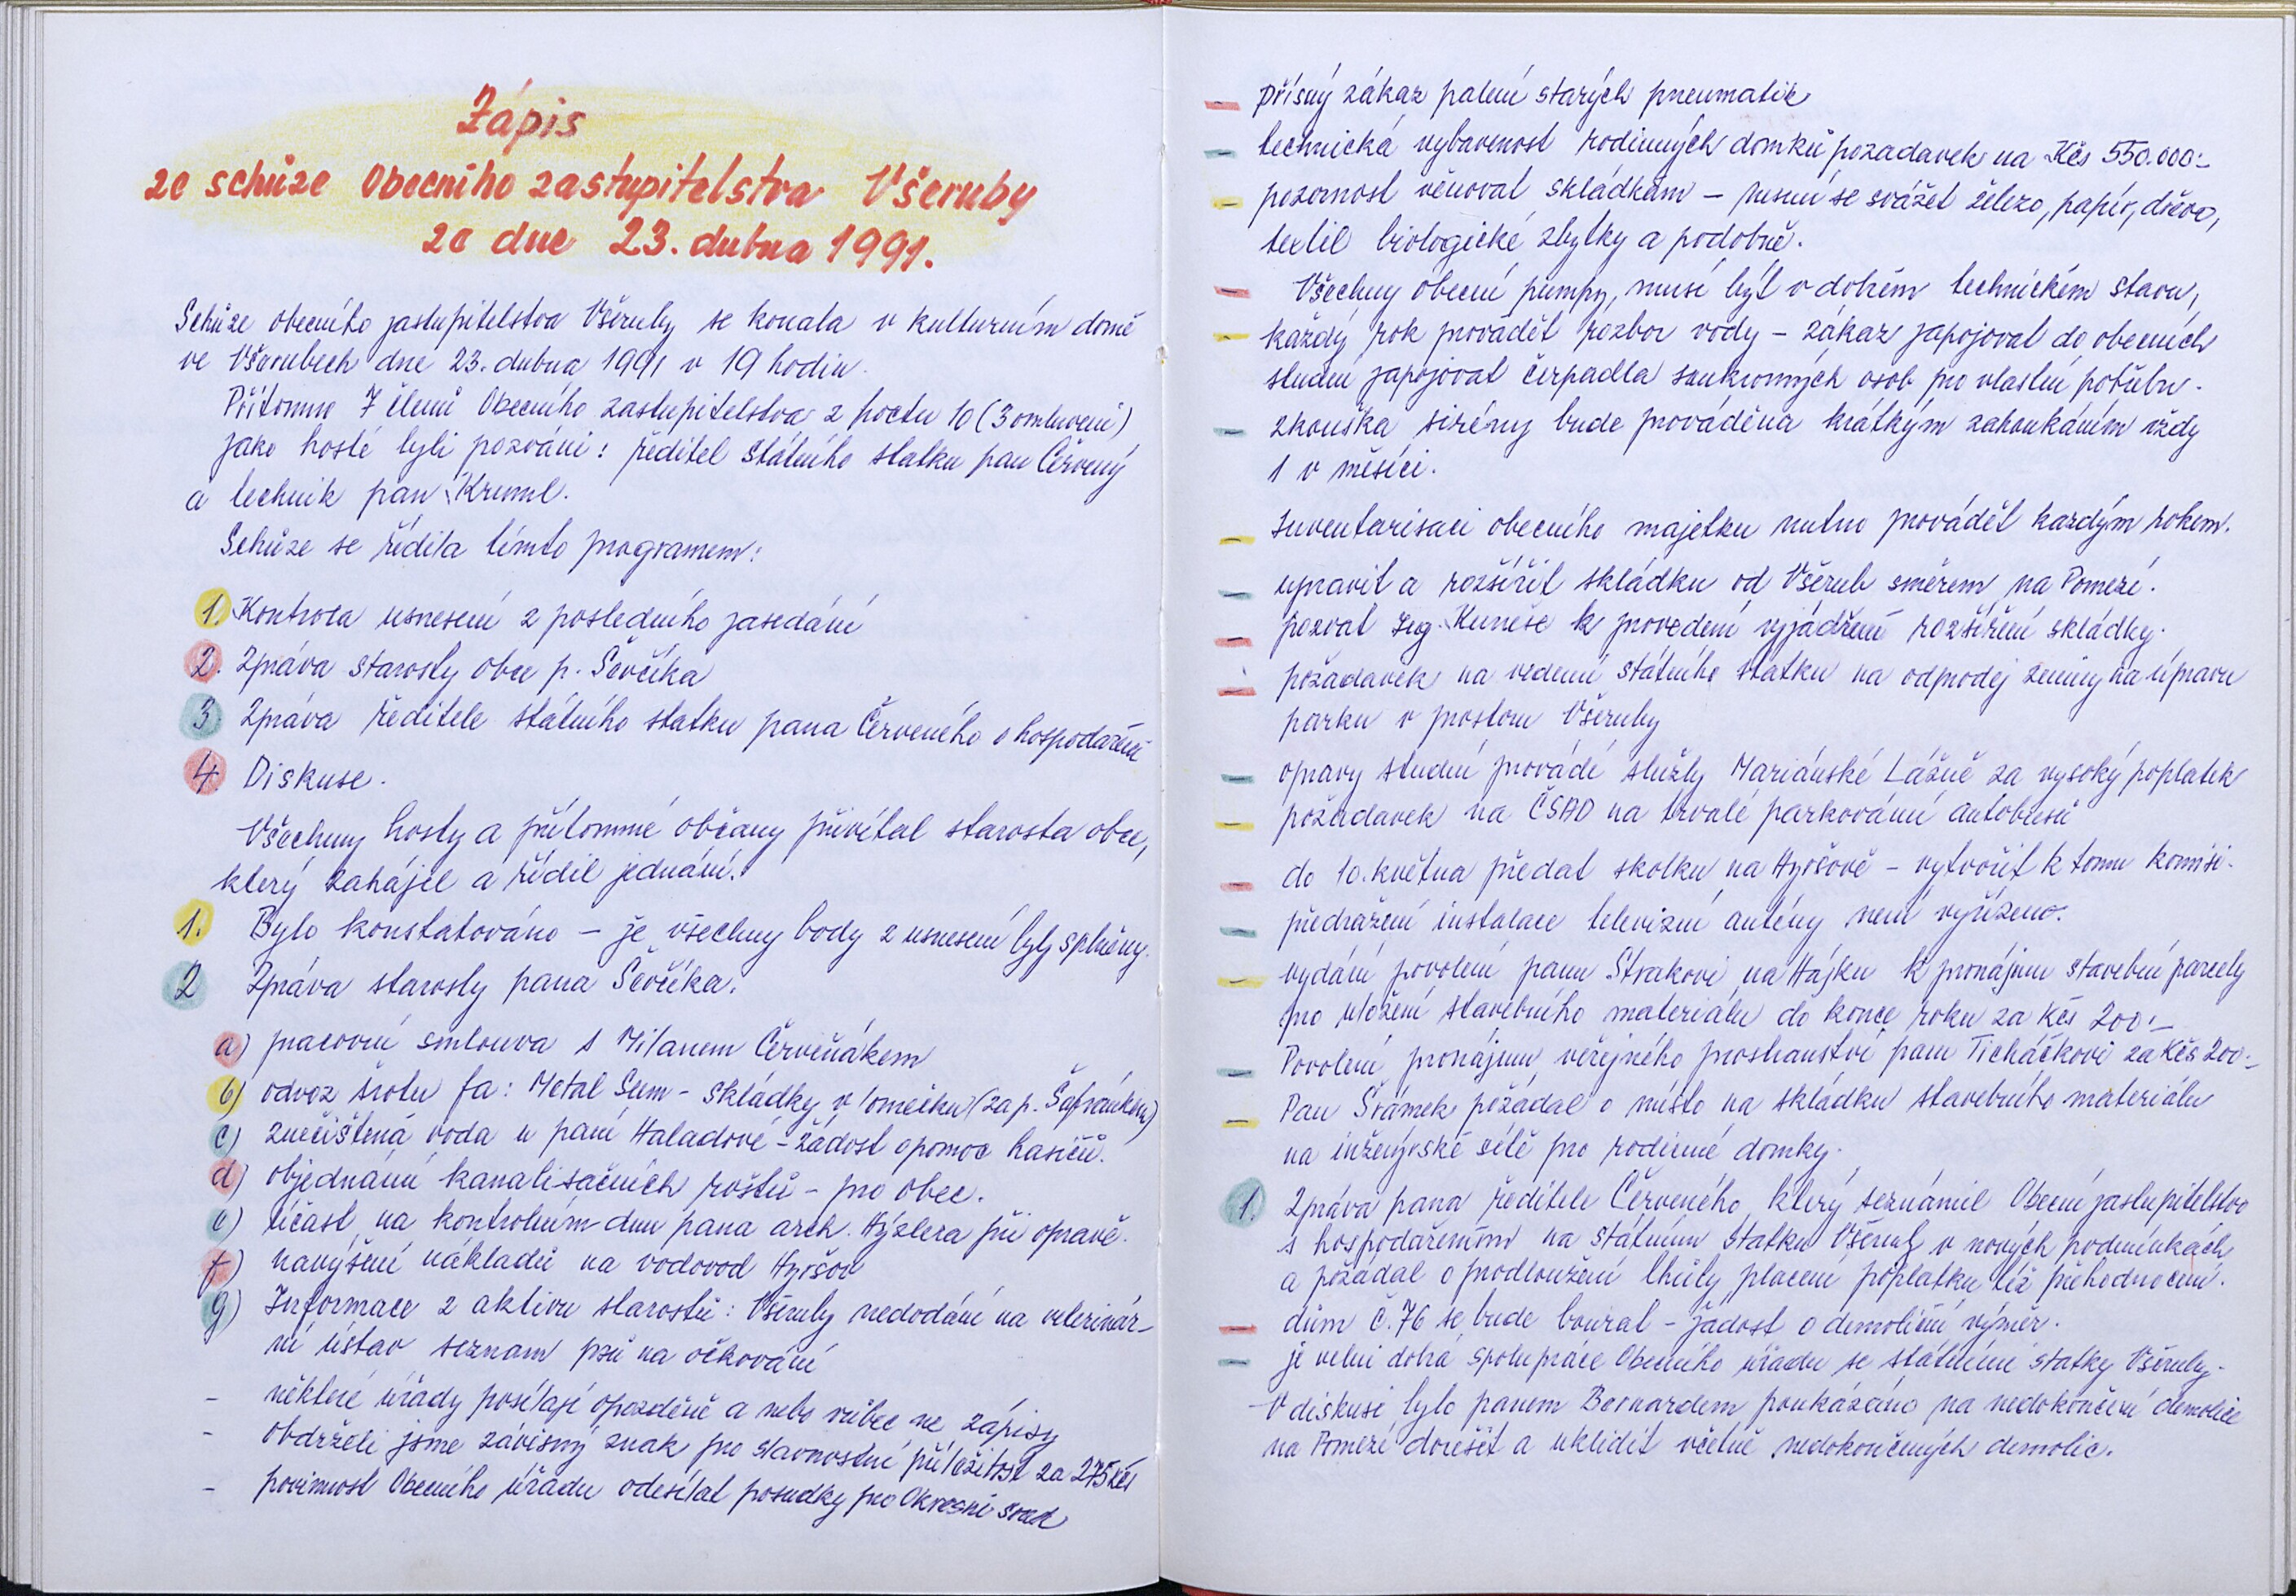 Zápis
ze schůze Obecního zastupitelstva Všeruby
ze dne 23. dubna 1991.
Schůze obecního zastupitelstva Všeruby se konala v kulturním domě
ve Všerubech dne 23. dubna 1991 v 19 hodin.
Přítomno 7 členů Obecního zastupitelstva z počtu 10 (3 omluveni)
jako hosté byli pozváni: ředitel Státního statku pan Červený
a technik pan Kruml.
Schůze se řídila tímto programem:
1. Kontrola usnesení z posledního zasedání
2. Zpráva starosty obce p. Ševčíka
3. Zpráva ředitele státního statku pana Červeného o hospodaření
4. Diskuse.
Všechny hosty a přítomné občany přivítal starosta obce,
který zahájil a řídil jednání.
1. Bylo konstatováno – že všechny body z usnesení byly splněny.
2 Zpráva starosty pana Ševčíka.
a) pracovní smlouva s Milanem Červeňákem
b) odvoz šrotu fa: Metal Sum - skládky v lomečku (za p. Šafránkem)
c) znečištěná voda u paní Haladové - žádost o pomoc hasičů.
d) objednání kanalisačních roštů - pro obec.
e) účast na kontrolním dnu pana arch. Hyzlera při opravě.
f) navýšení nákladů na vodovod Hyršov
g) Informace z aktivu starostů: Všeruby nedodání na veterinár-
ní ústav seznam psů na očkování
- některé úřady posílají opozděně a nebo vůbec ne zápisy
- obdrželi jsme závěsný znak pro slavnostní příležitost za 275 Kčs
- povinnost Obecního úřadu odesílat posudky pro Okresní soud
- přísný zákaz palení starých pneumatik
- technická vybavenost rodinných domků požadavek na Kčs 550.000:-
- pozornost věnovat skládkám – nesmí se svážet železo, papír, dřevo,
textil biologické zbytky a podobně.
- Všechny obecní pumpy, musí být v dobrém technickém stavu,
- každý rok provádět rozbor vody – zákaz zapojovat do obecních
studní zapojovat čerpadla soukromých osob pro vlastní potřebu.
- zkouška sirény bude prováděna krátkým zahoukáním vždy
1 v měsíci.
- Inventarisaci obecního majetku nutno provádět kazdým rokem.
- upravit a rozšířit skládku od Všerub směrem na Pomezí.
- pozvat Ing. Kuneše k provedení vyjádření rozšíření skládky.
- požadavek na vedení státního statku na odprodej zeminy na úpravu
parku v prostoru Všeruby
- opravy studní provádí služby Mariánské Lázně za vysoký poplatek
- požadavek na ČSAD na trvalé parkování autobusů
- do 10. května předat školku na Hyršově – vytvořit k tomu komisi.
- předražení instalace televizní antény není vyřízeno.
- vydání povolení panu Strakovi na Hájku k pronájmu stavební parcely
pro uložení stavebního materiálu do konce roku za Kčs 200:-
- Povolení pronájmu veřejného prostranství panu Ticháčkovi za Kčs 200:-
- Pan Šrámek požádal o místo na skládku stavebního materiálu
na inženýrské sítě pro rodinné domky.
1. Zpráva pana ředitele Červeného, který seznámil Obecní zastupitelstvo
s hospodařením na státním statku Všeruby v nových podmínkách
a požádal o prodloužení lhůty placení poplatku též přehodnocení.
- dům č. 76 se bude bourat – žádost o demoliční výměr.
- je velmi dobrá spolupráce Obecního úřadu se státními statky Všeruby.
V diskusi bylo panem Bernardem poukázáno na nedokončení demolice
na Pomezí dořešit a uklidit včetně nedokončených demolic.